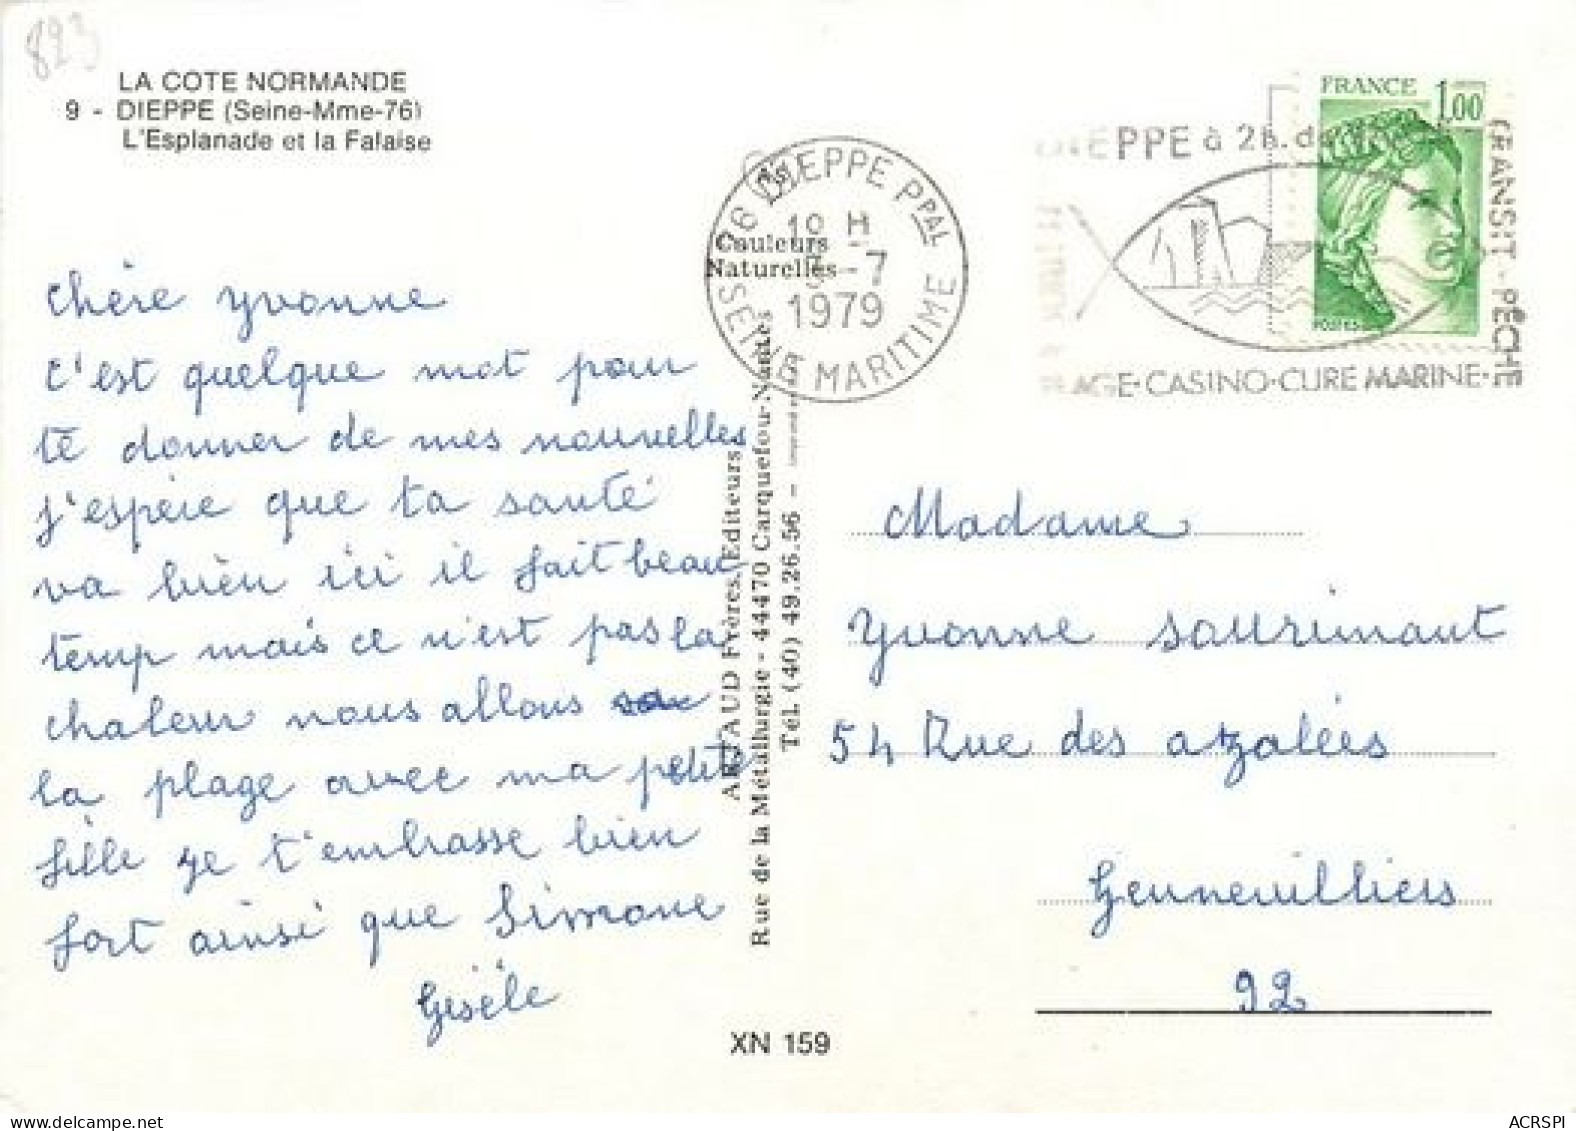 823
LA COTE NORMANDE
9 - DIEPPE (Seine-Mme-76)
L'Esplanade et la Falaise
Chère Yvonne
C'est quelque mot pour
te donner de mes nouvelles
j'espère que ta santé
va bien ici il fait beau
temp mais ce n'est pas la
chaleur nous allons
la plage avec ma petite
fille ge t'embrasse bien
fort ainsi que Simone
Gisèle
Couleurs
Naturelles
76 DIEPPE PPAL
19 H
-7
1979
SEINE MARITIME
ARTAUD Frères, Editeurs
Rue de la Métallurgie - 44470 Carquefou-Nantes
Tél. (40) 49.26.56 -
XN 159
DIEPPE à 2h. de
TRANSIT - PÊCHE
PLAGE·CASINO·CURE MARINE·
FRANCE 1,00
POSTES
Madame
Yvonne Saurimaut
54 Rue des azalées
Gennevilliers
92
ACRSPI